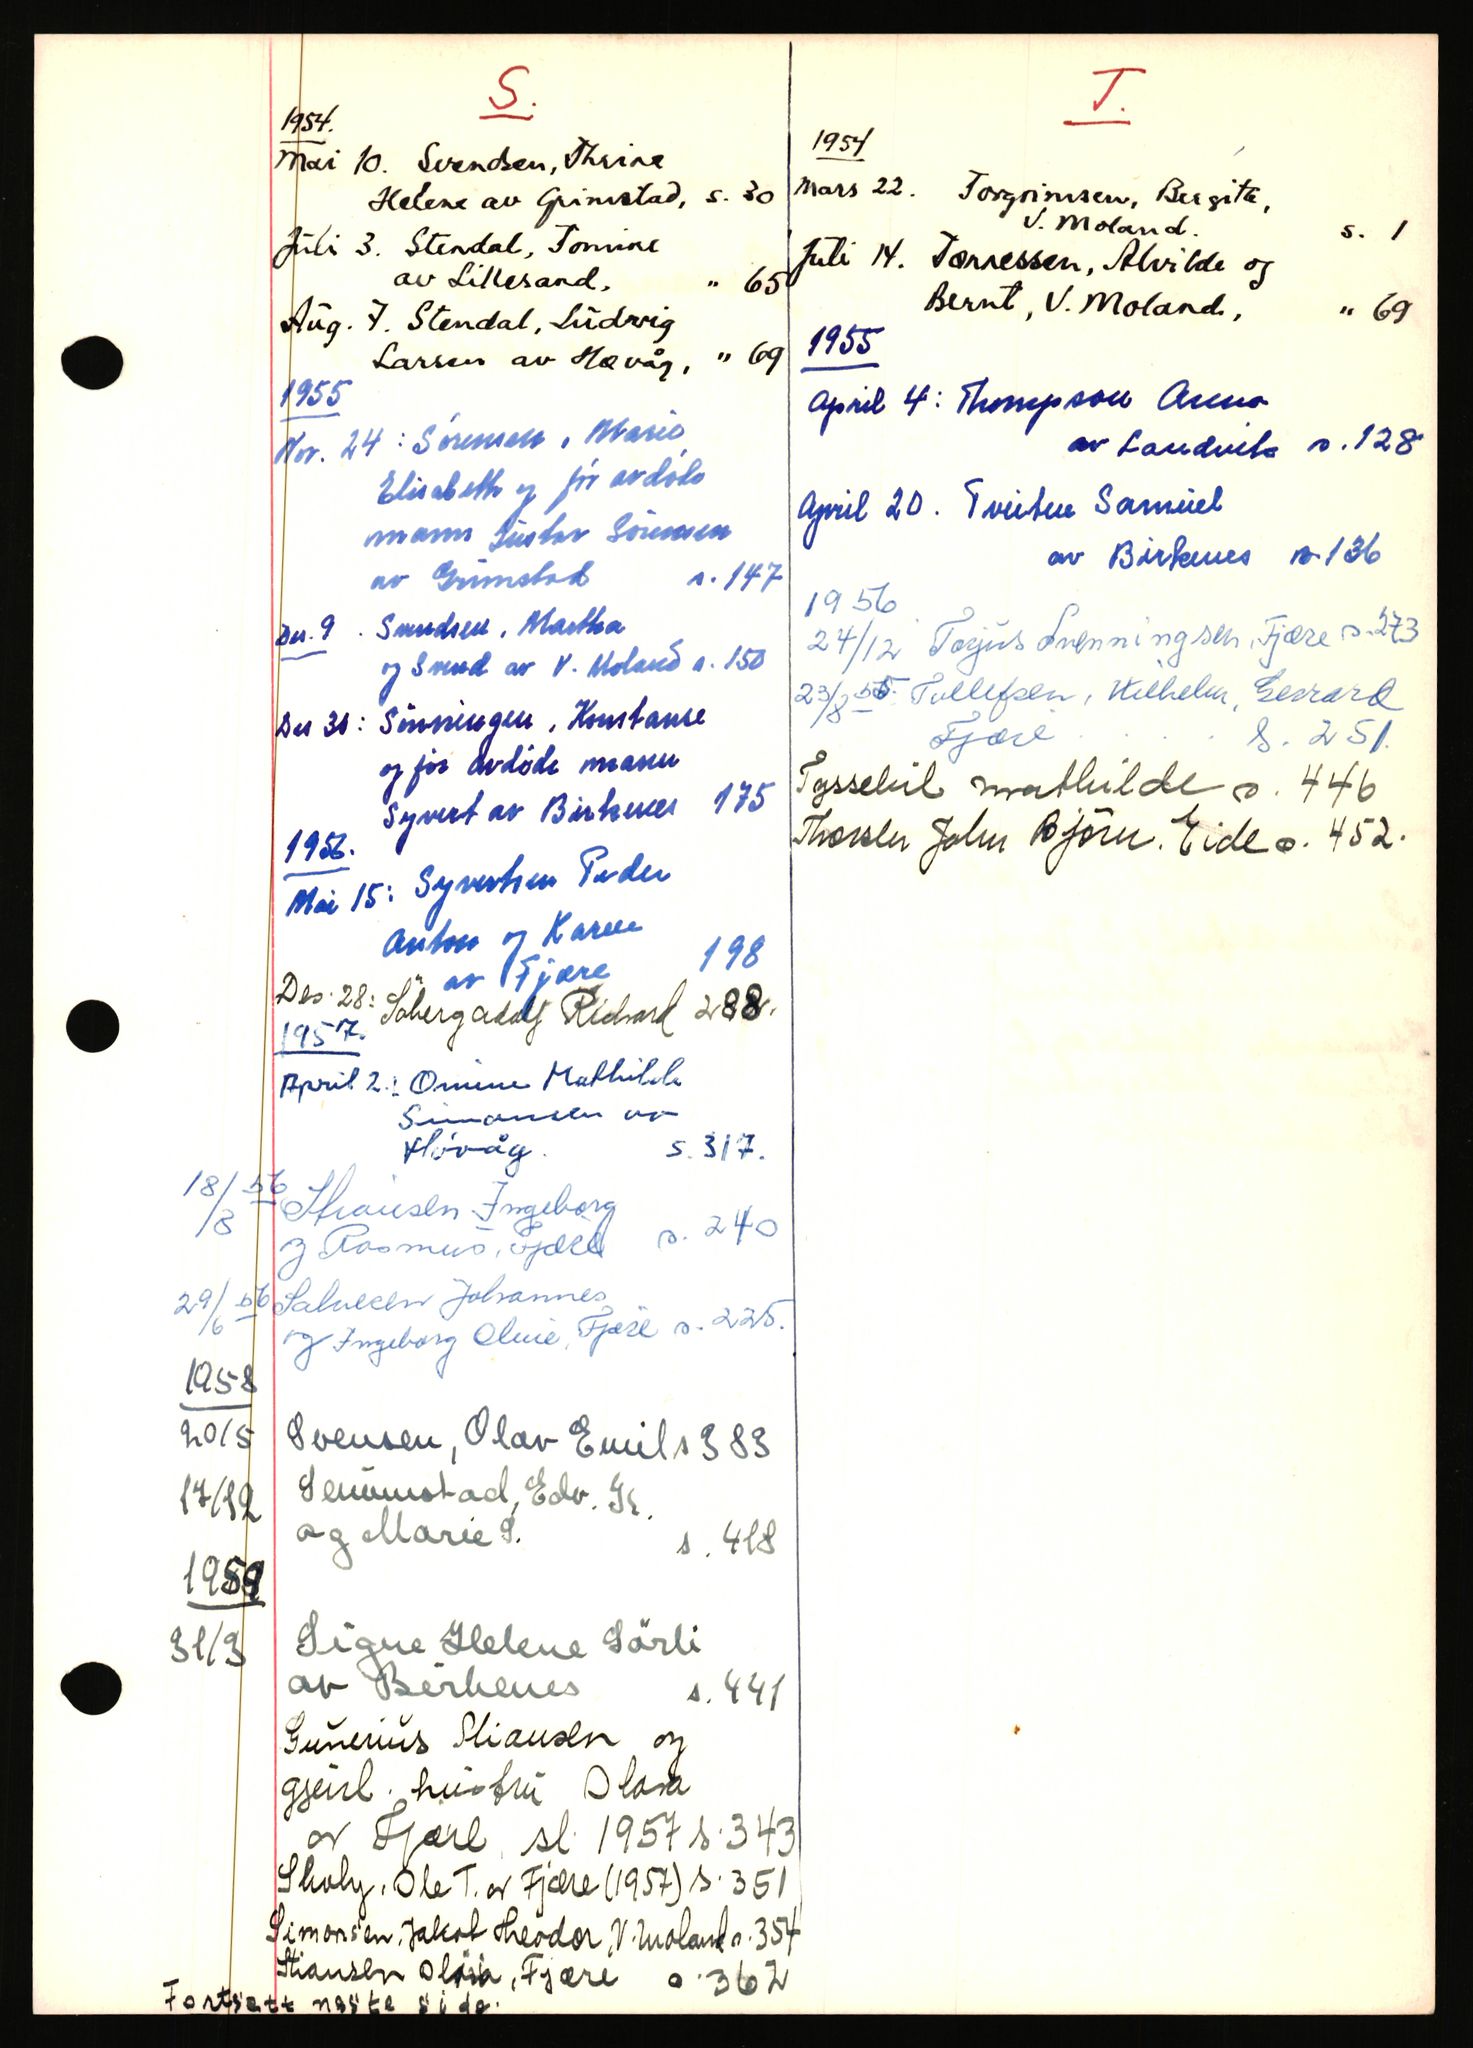 S.
1954.
Mai 10. Svendsen, Thrine
Helene av Grimstad, s. 30
Juli 3. Stendal, Tomine
av Lillesand, " 65
Aug. 7. Stendal, Ludvig
Larsen av Høvåg, " 69
1955
Nov. 24: Sørensen, Marie
Elisabeth og for avdøde
mann Gustav Sørensen
av Grimstad s. 147
Des. 9. Svendsen, Martha
og Svend av V. Moland s. 150
Des 30: Sinningen, Konstanse
og for avdøde mann
Syvert av Birkenes 175
1956.
Mai 15: Syvertsen Peder
Anton og Karen
av Fjære 198
Des. 28: Söberg Adolf Richard 288.
1957.
April 2.: Omine Mathilde
Simonsen av
Høvåg. s. 317.
18/8 56 Stiansen Ingeborg
og Rasmus, Fjære s. 240
29/6 56 Salvesen Johannes
og Ingeborg Oline, Fjære s. 225.
1958
20/5 Svensen, Olav Emil s 383
17/12 Senumstad, Edv. Gr.
og Marie S. s. 418
1959
31/3 Signe Helene Sörli
av Birkenes s. 441
Gunerius Stiansen og
gjenl. hustru Olava
av Fjære sl. 1957 s. 343
Skoly, Ole T. av Fjære (1957) s. 351
Simonsen, Jakob Theodor, V. Moland s. 354
Stiansen Olava, Fjære s. 362
Fortsett neste side.
T.
1954
Mars 22. Torgrimsen, Bergite,
V. Moland. s. 1
Juli 14. Tønnessen, Alvilde og
Bernt, V. Moland, " 69
1955
April 4: Thompson Anna
av Landvik s. 128
April 20. Tveiten Samuel
av Birkenes s 136
1956
24/12 Torjus Svenningsen, Fjære s. 273
23/8 56 Tellefsen, Vilhelm, Gerrard
Fjære . . . . s. 251.
Tysselil Mathilde s. 446
Thorsen John Björn. Eide s. 452.